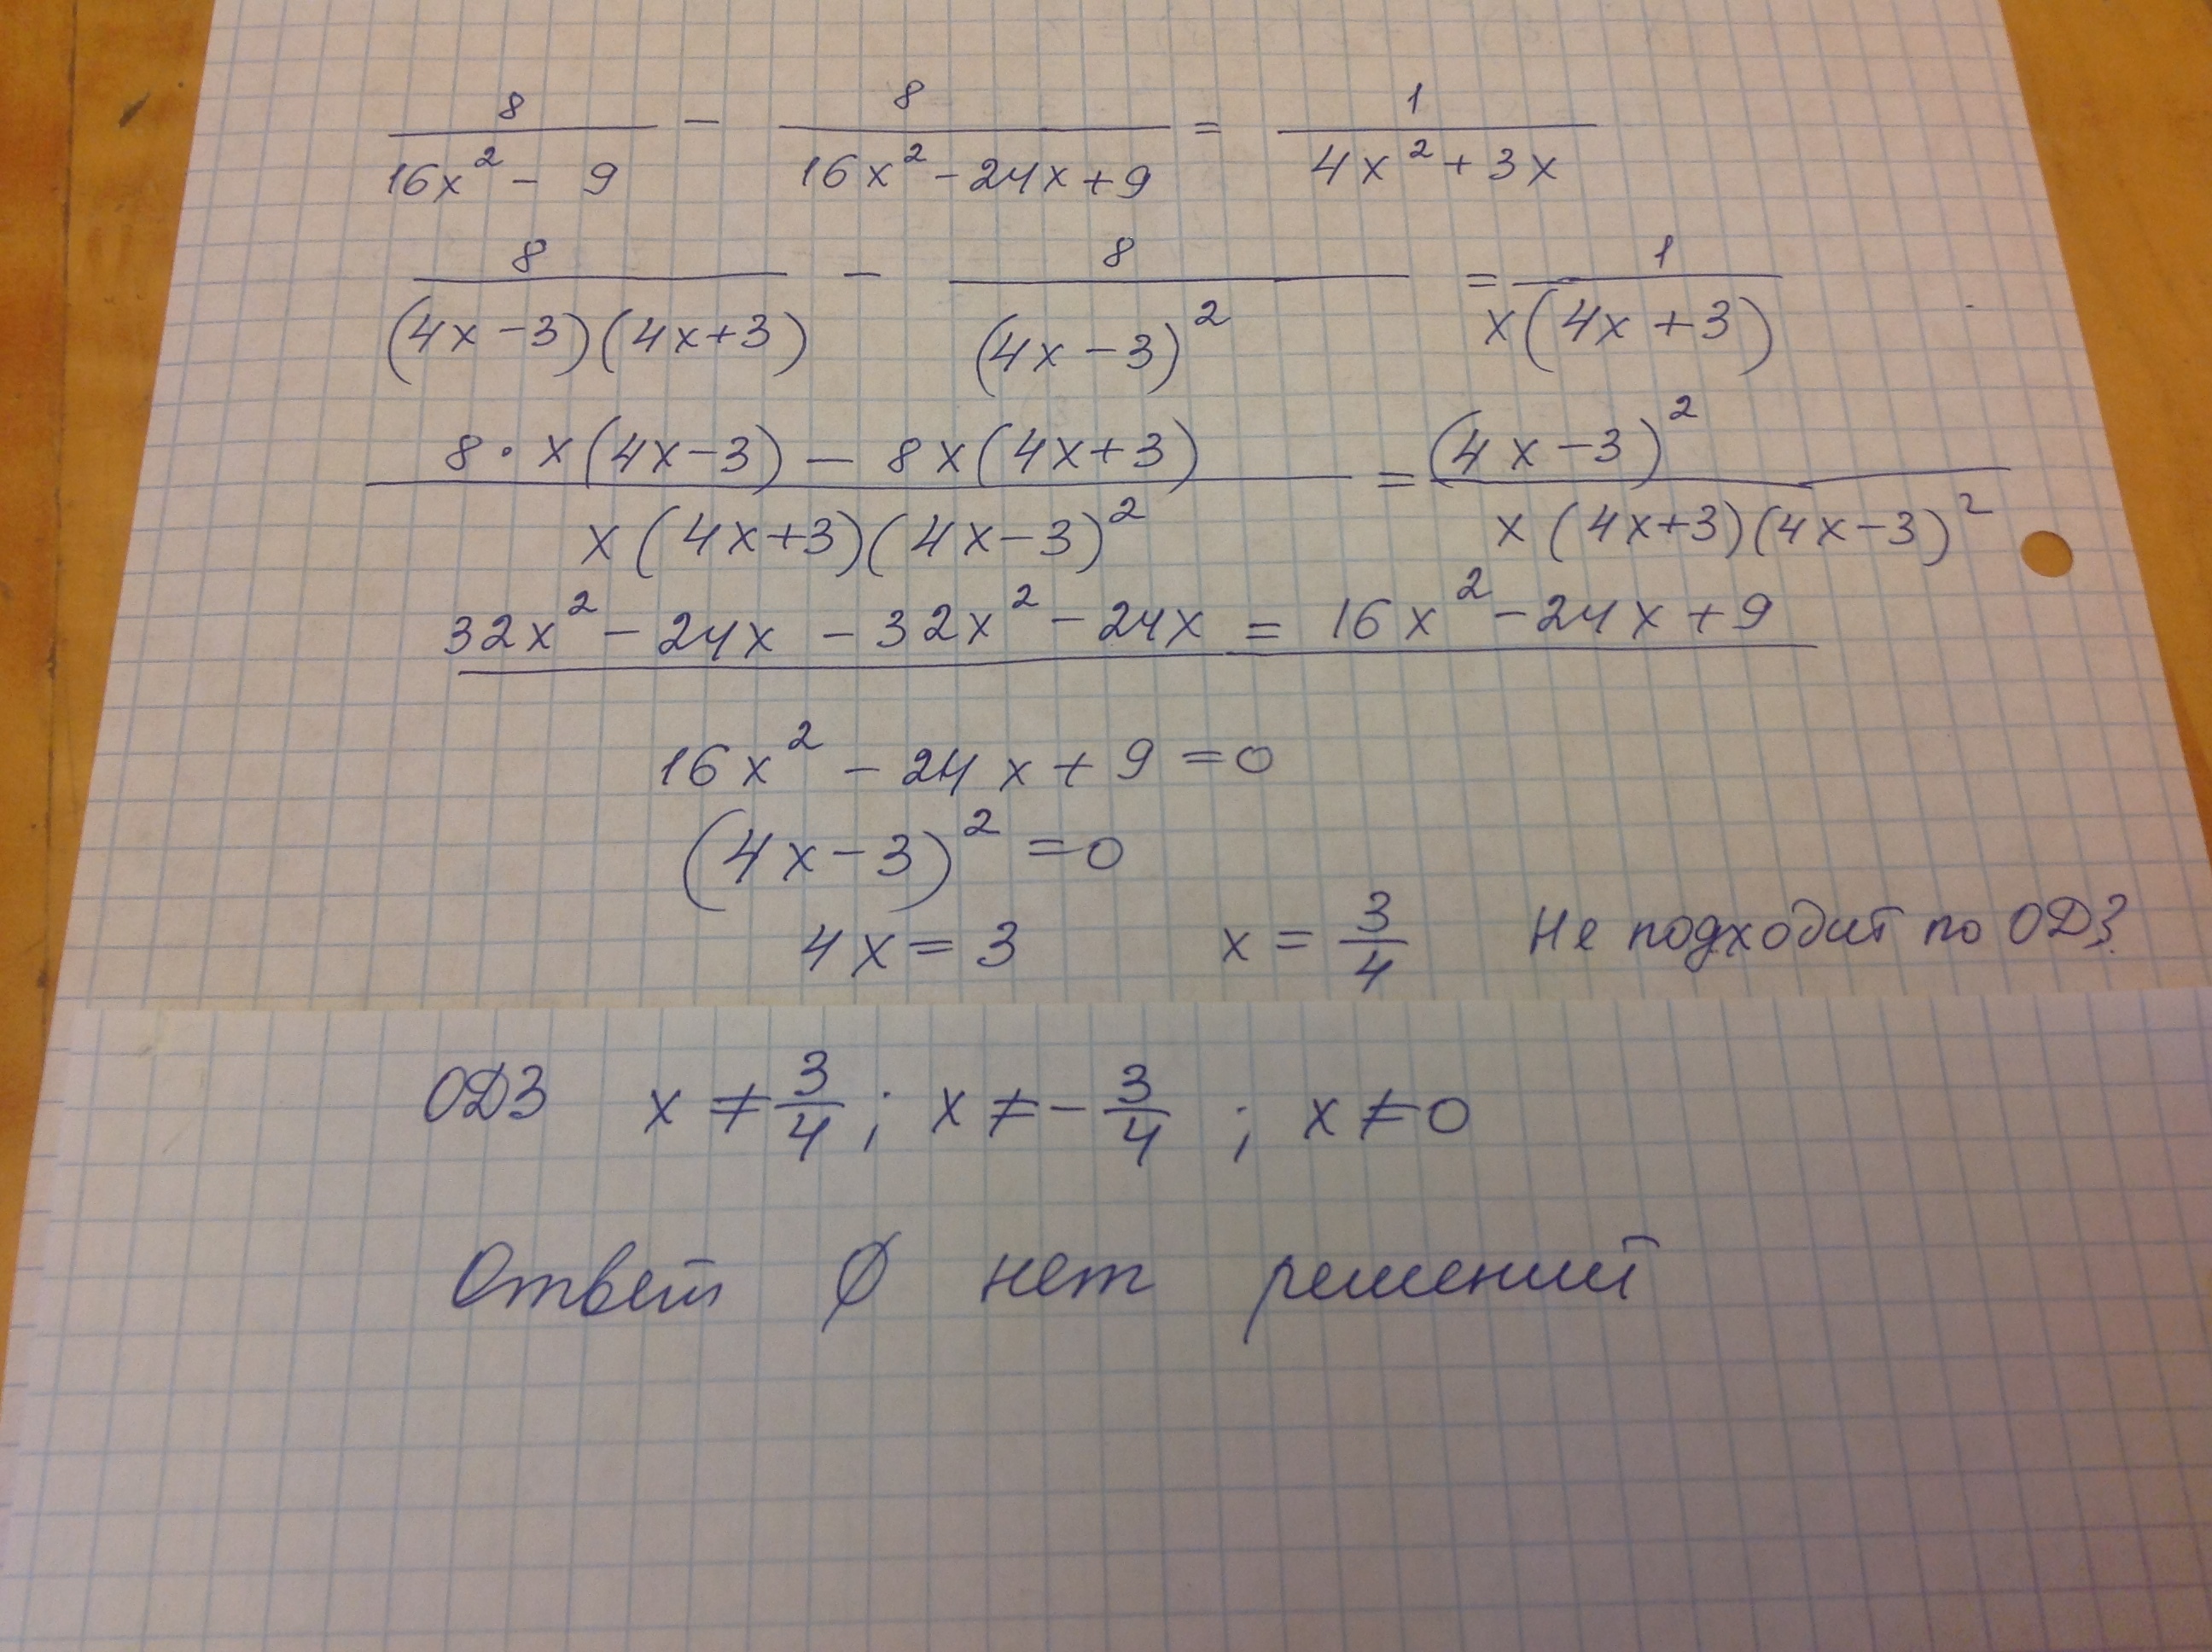 8/(16x² - 9) - 8/(16x² - 24x + 9) = 1/(4x² + 3x)
8/((4x - 3)(4x + 3)) - 8/(4x - 3)² = 1/(x(4x + 3))
(8 · x(4x - 3) - 8x(4x + 3))/(x(4x + 3)(4x - 3)²) = (4x - 3)²/(x(4x + 3)(4x - 3)²)
32x² - 24x - 32x² - 24x = 16x² - 24x + 9
16x² - 24x + 9 = 0
(4x - 3)² = 0
4x = 3 x = 3/4 Не подходит по ОДЗ
ОДЗ x ≠ 3/4 ; x ≠ - 3/4 ; x ≠ 0
Ответ ∅ нет решений